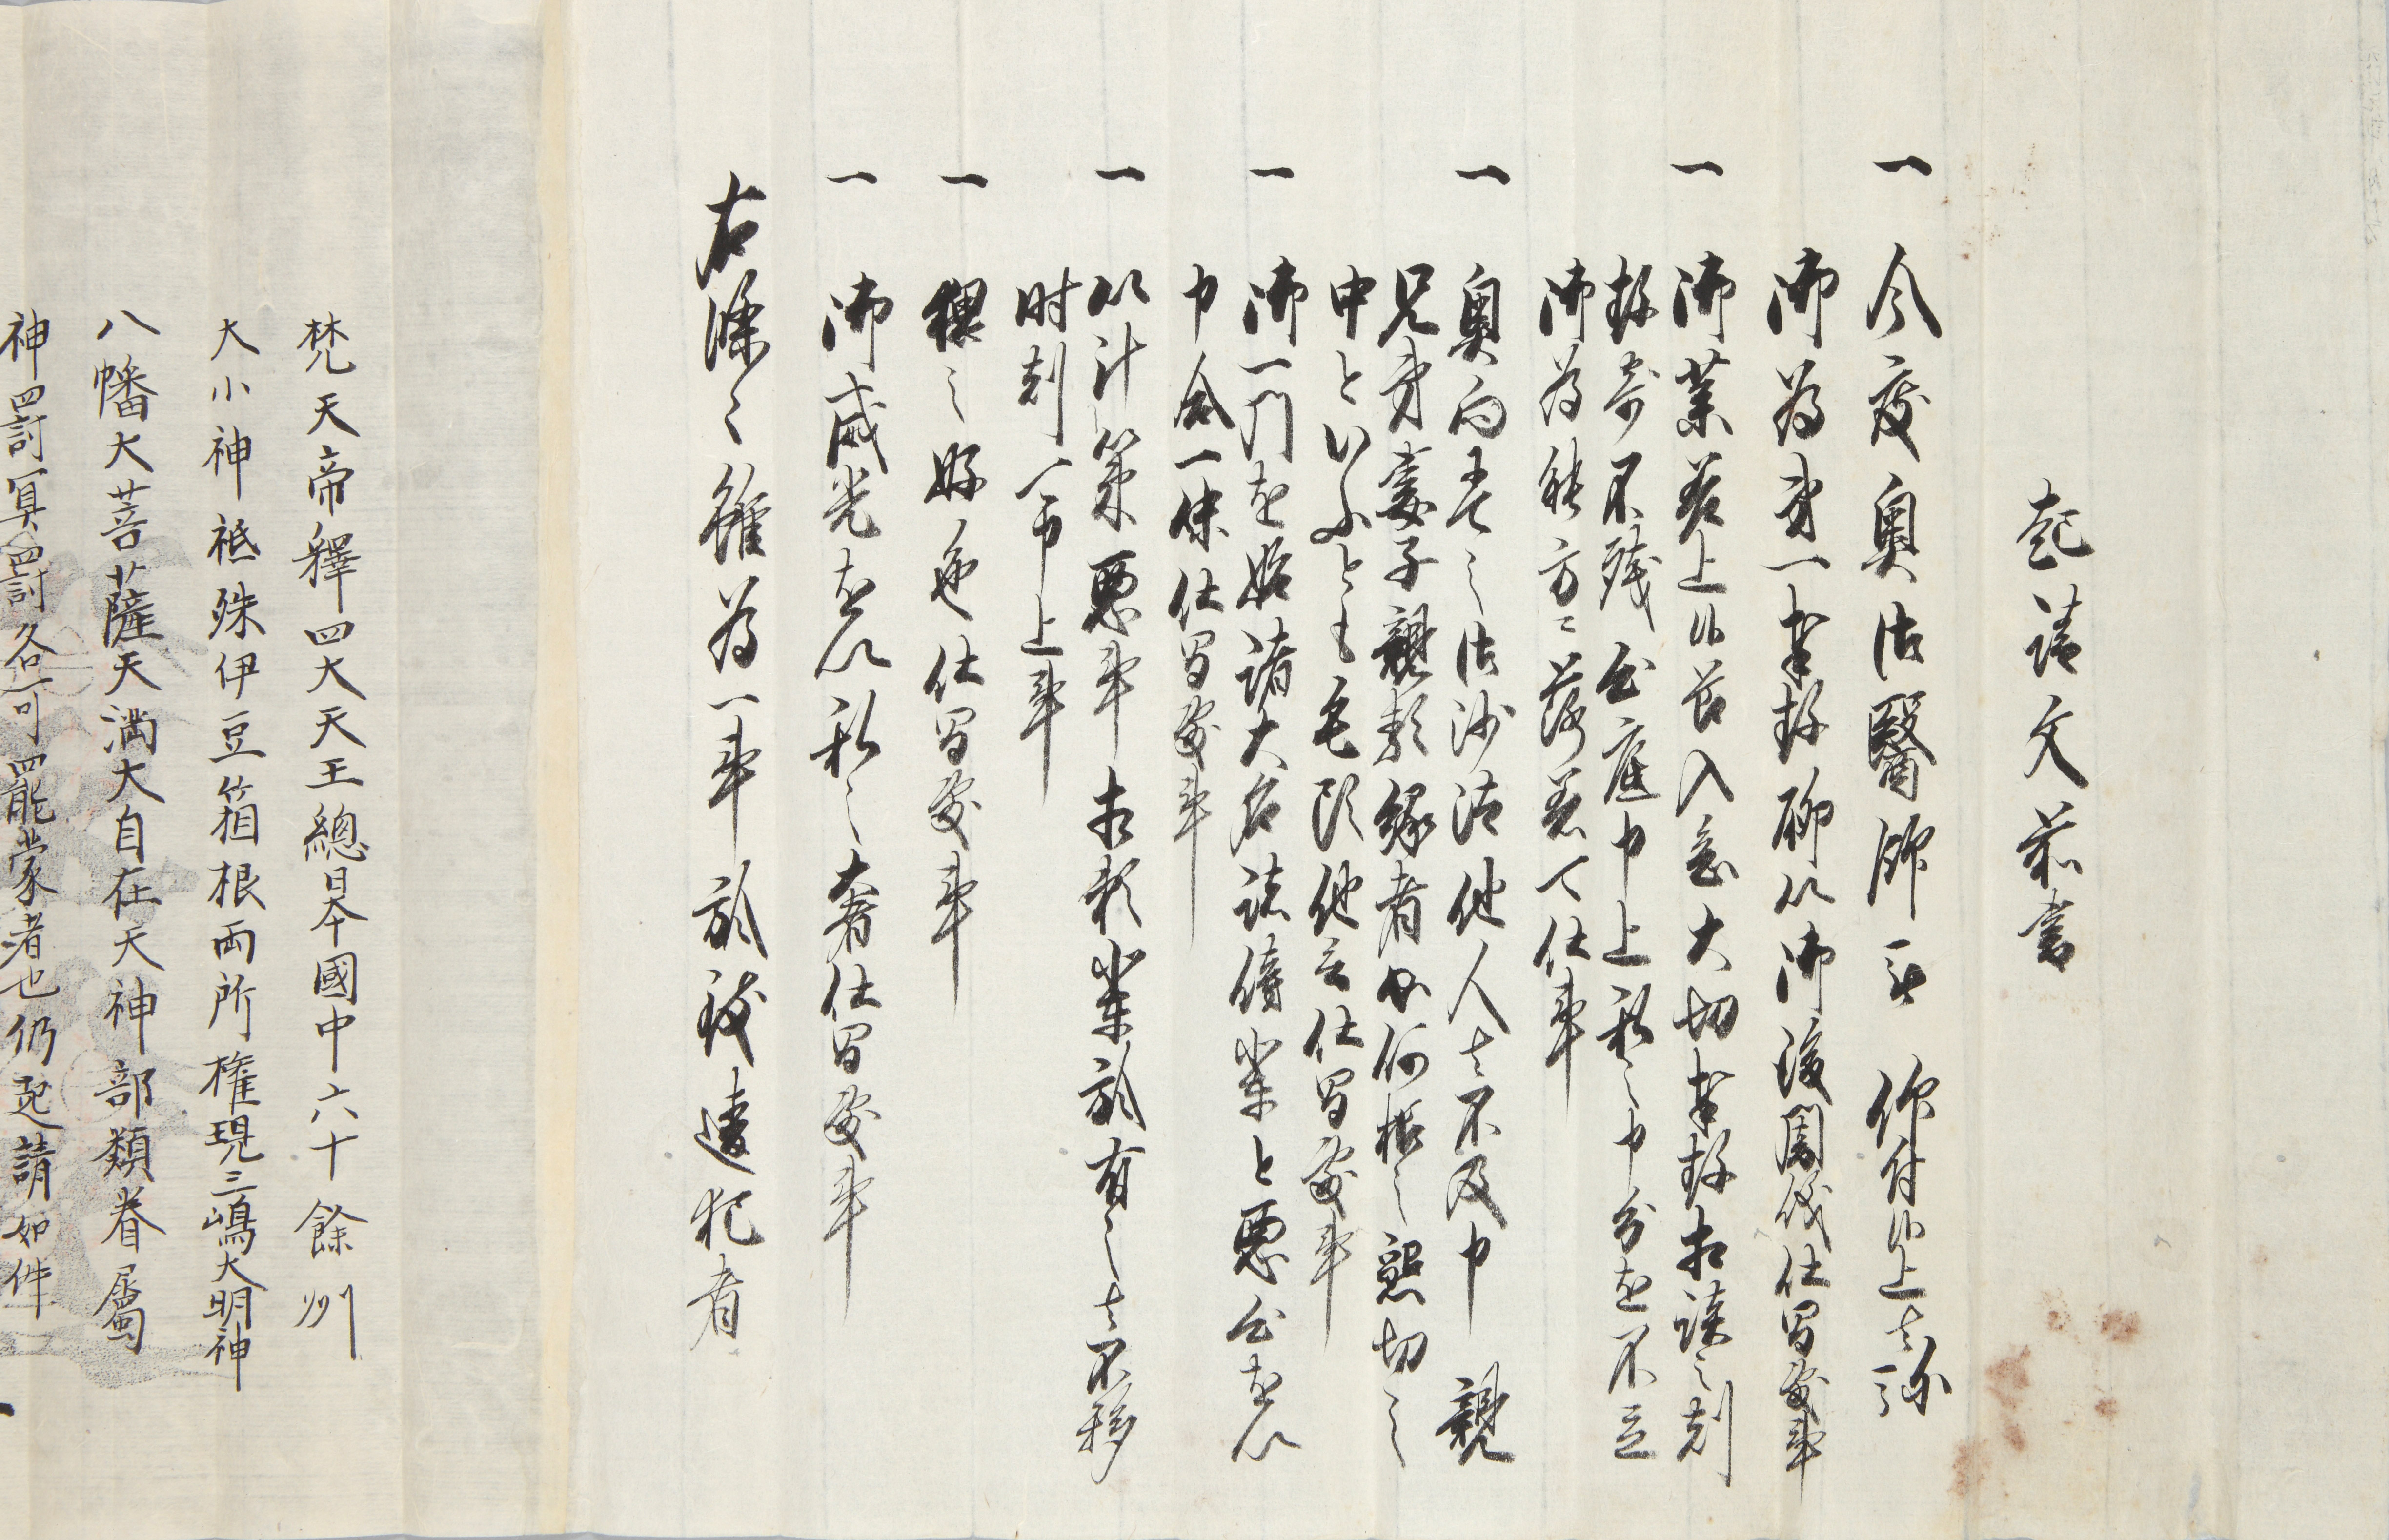 起請文前書
一 今度奥御醫師ニ被 仰付候上者弥
御為第一奉存聊以御後闇儀仕間敷事
一 御薬差上候節入念大切奉存相談之刻
存寄不残心底申上私之申分を不立
御為能方ニ落着可仕事
一 奥向承之御沙汰他人者不及申 親
兄弟妻子親類縁者如何様之懇切之
中といふとも毛頭他言仕間敷事
一 御一門を始諸大名諸傍輩と悪心を以
申合一味仕間敷事
一 以計策悪事相頼輩於有之者不移
時刻可申上事
一 猥之好色仕間敷事
一 御威光を以私之奢仕間敷事
右條々雖為一事於致違犯者
梵天帝釋四大天王總日本國中六十餘州
大小神祇殊伊豆箱根両所権現三嶋大明神
八幡大菩薩天満大自在天神部類眷屬
神罰冥罰各可罷蒙者也仍起請如件